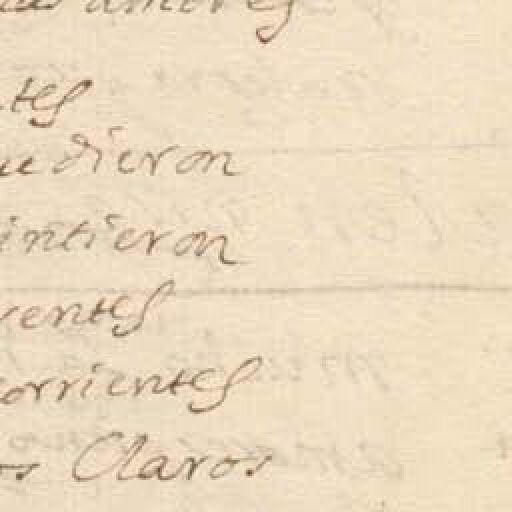 amores
tes
uedieron
intieron
rentes
corrientes
os Claros